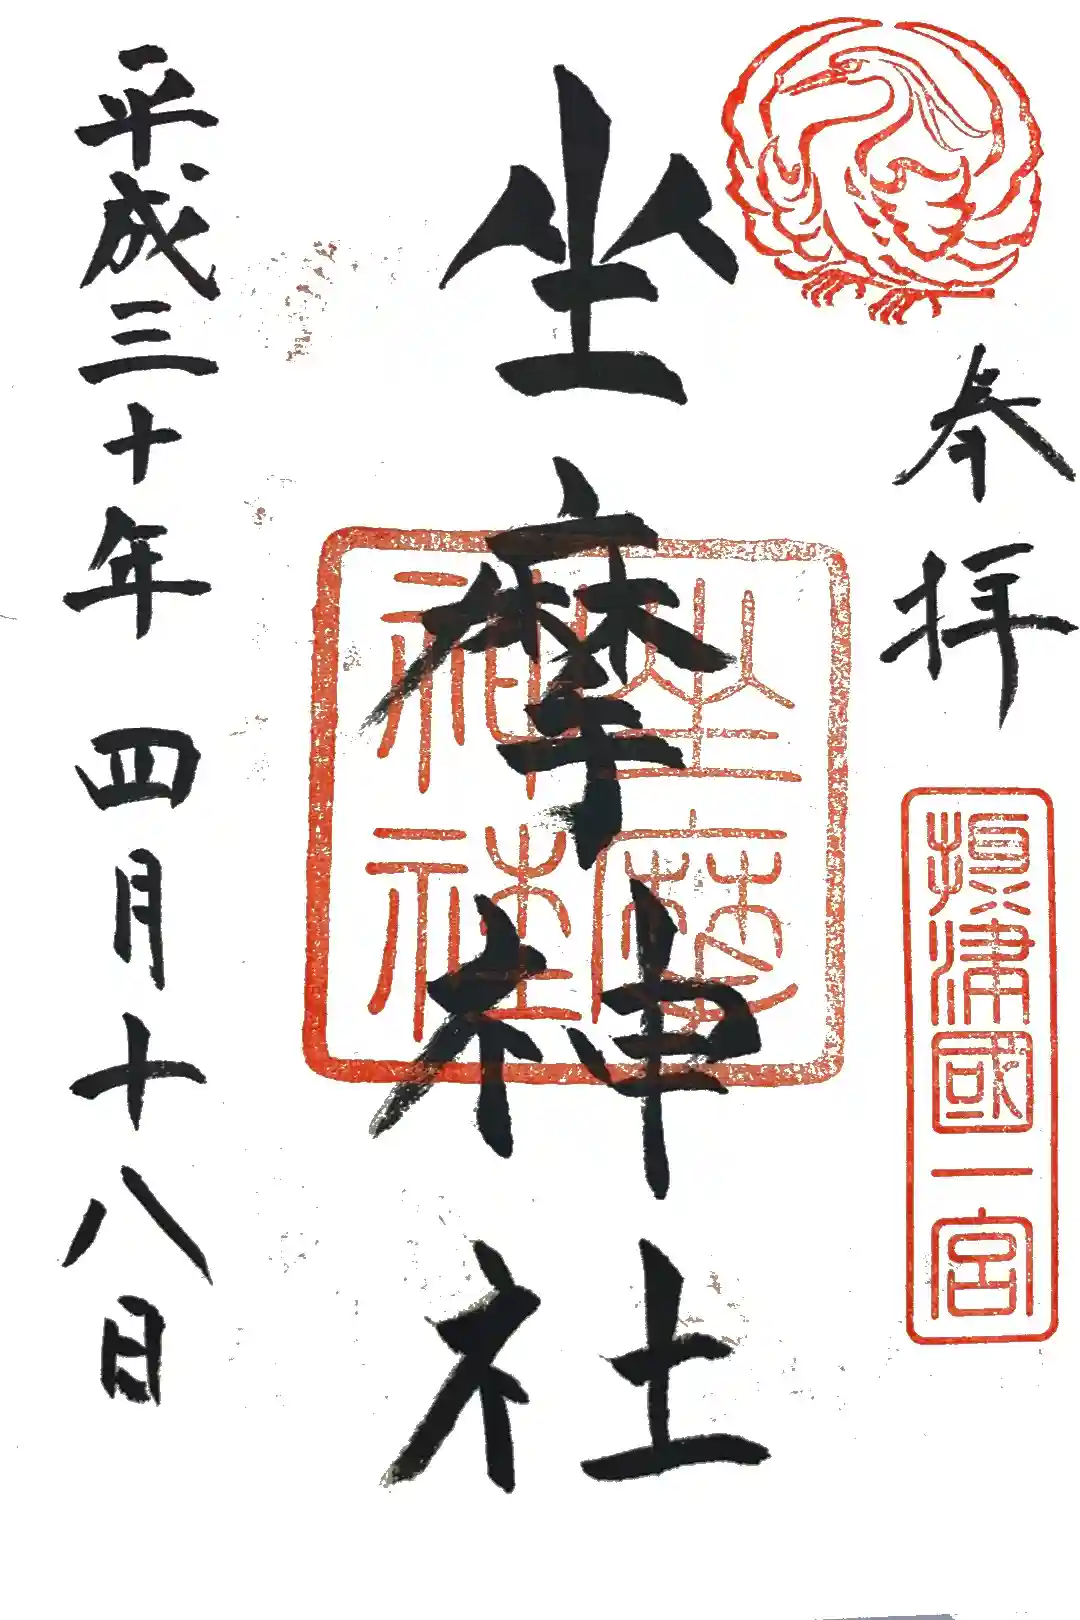 奉拝
摂津國一宮
坐摩神社
坐摩神社
平成三十年 四月十八日